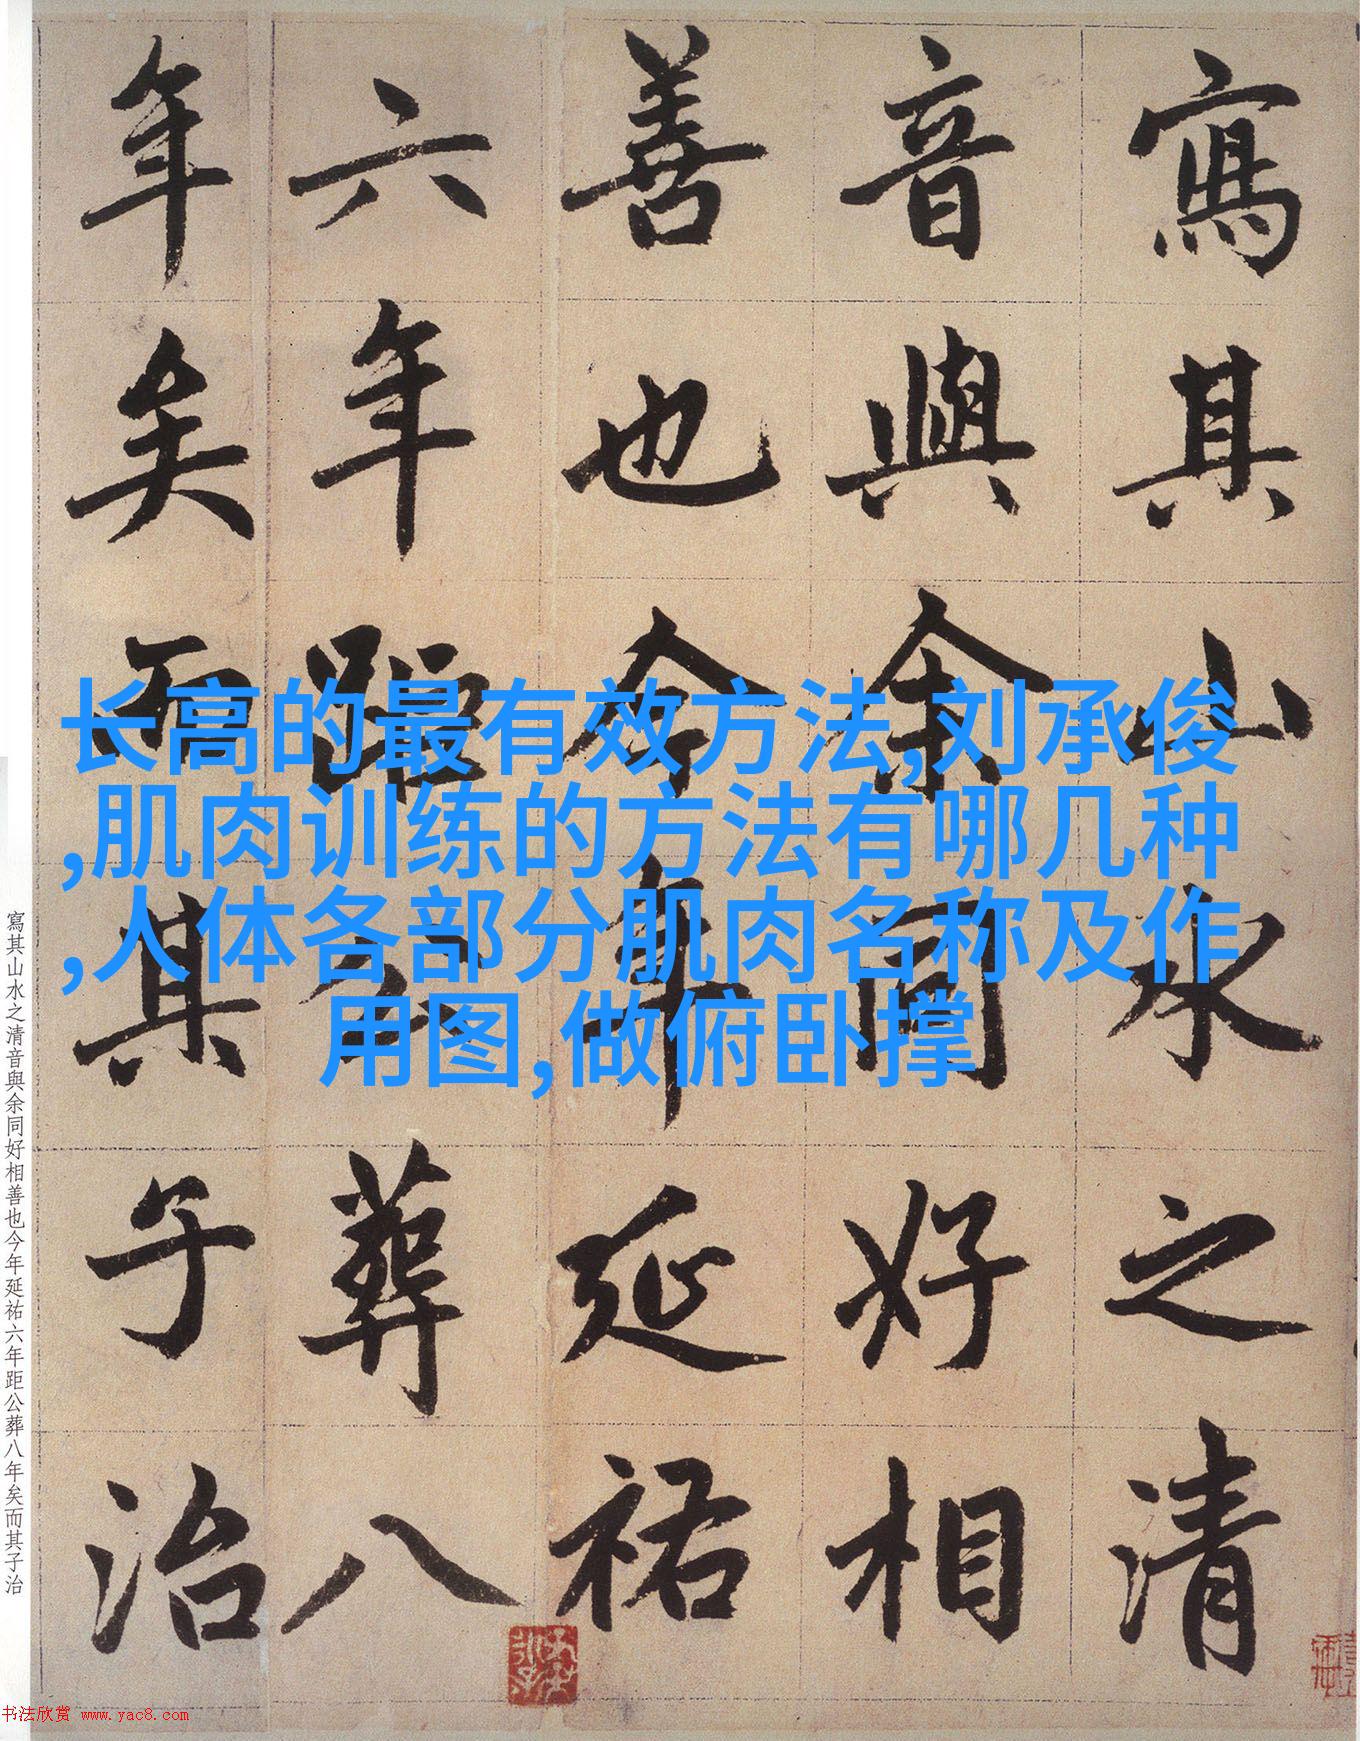 寫其山水之清
音與余同好相
善也今年延祐
六年距公葬八
年矣而其子治
长高的最有效方法,刘承俊
,肌肉训练的方法有哪几种
,人体各部分肌肉名称及作
用图,做俯卧撑
寫其山水之清音與余同好相善也今年延祐六年距公葬八年矣而其子治
书法欣赏 www.yac8.com